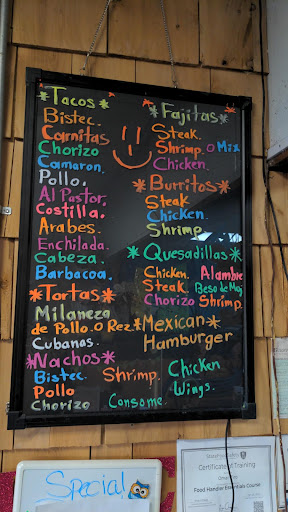 *Tacos*
Bistec.
Carnitas
Chorizo
Camaron.
Pollo.
Al Pastor.
Costilla.
Arabes.
Enchilada.
Cabeza.
Barbacoa.
*Tortas*
Milaneza
de Pollo. O Rez.
Cubanas.
*Nachos*
Bistec.
Pollo
Chorizo
*Fajitas*
Steak.
Shrimp. O Mix
Chicken.
*Burritos*
Steak
Chicken.
Shrimp
*Quesadillas*
Chicken. Alambre
Steak. Beso de Maj
Chorizo Shrimp.
*Mexican*
Hamburger
Shrimp.
Chicken
Wings.
Consome.
Special
Certificate of Training
Food Handler Essentials Course